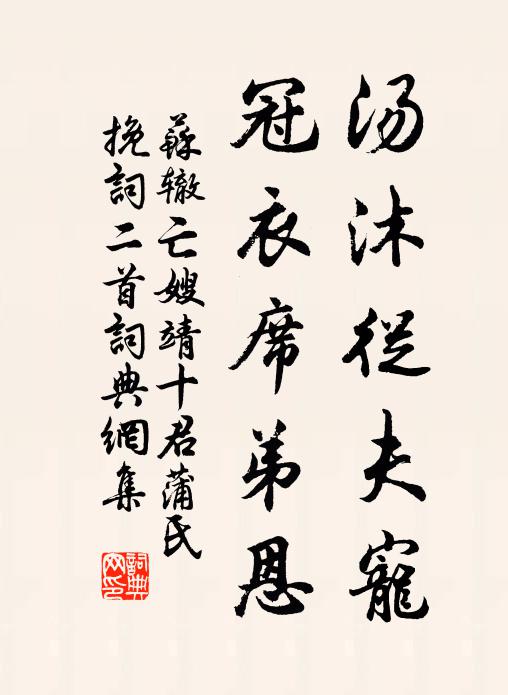 汤沐從夫寵
冠衣席弟恩
蘇辙亡嫂靖十君蒲氏
挽詞二首詞典網集
詞典网印